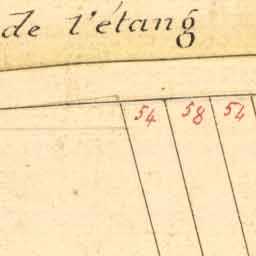 de l'étang
54 58 54